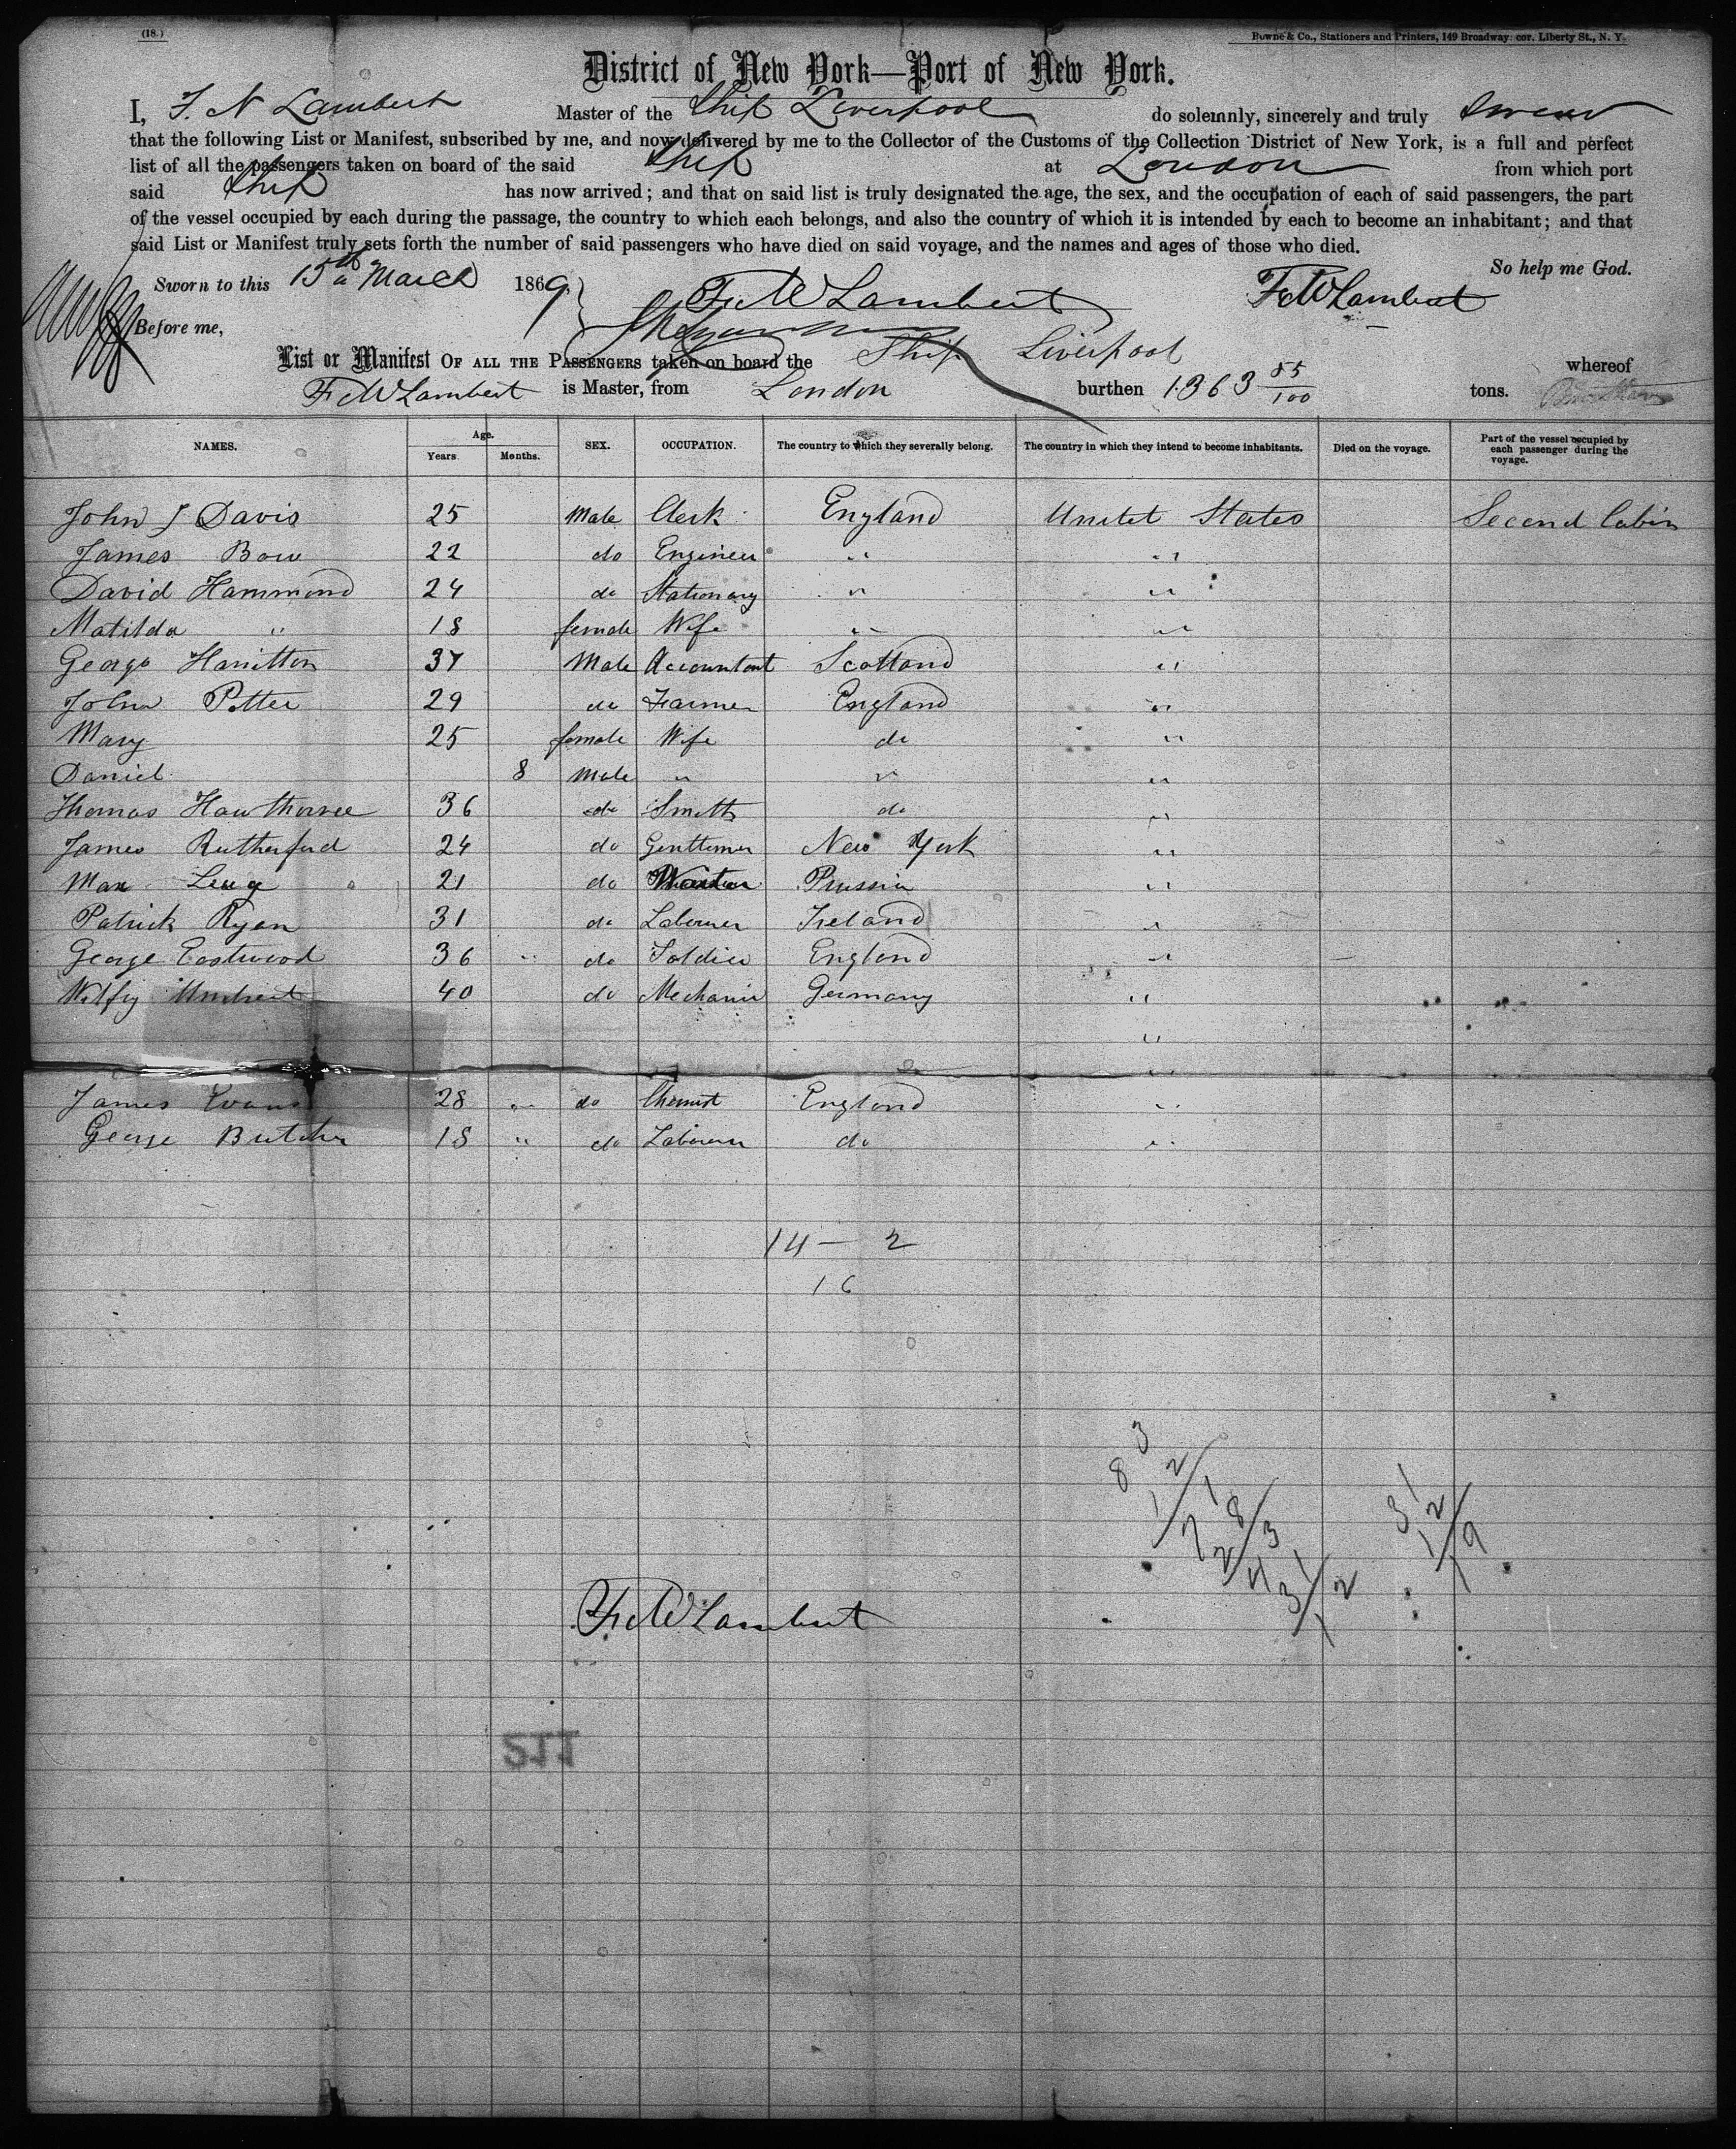 (18.)
Bowne & Co., Stationers and Printers, 149 Broadway cor. Liberty St., N. Y.
District of New York—Port of New York.
I, F. W Lambert Master of the Ship Liverpool do solemnly, sincerely and truly swear
that the following List or Manifest, subscribed by me, and now delivered by me to the Collector of the Customs of the Collection District of New York, is a full and perfect
list of all the passengers taken on board of the said Ship at London from which port
said Ship has now arrived; and that on said list is truly designated the age, the sex, and the occupation of each of said passengers, the part
of the vessel occupied by each during the passage, the country to which each belongs, and also the country of which it is intended by each to become an inhabitant; and that
said List or Manifest truly sets forth the number of said passengers who have died on said voyage, and the names and ages of those who died.
So help me God.
Sworn to this 15th March 1869 F W Lambert F W Lambert
Before me,
List or Manifest OF ALL THE PASSENGERS taken on board the Ship Liverpool whereof
F W Lambert is Master, from London burthen 1363 85/100 tons.
NAMES. Age. Years. Months. SEX. OCCUPATION. The country to which they severally belong. The country in which they intend to become inhabitants. Died on the voyage. Part of the vessel occupied by each passenger during the voyage.
John J Davis 25 Male Clerk England United States Second Cabin
James Bow 22 do Engineer " "
David Hammond 24 do Stationary " "
Matilda " 18 female Wife " "
George Hamilton 37 Male Accountant Scotland "
John Potter 29 do Farmer England "
Mary 25 female Wife do "
Daniel 8 Male " " "
Thomas Hawthorne 36 do Smith do "
James Rutherford 24 do Gentleman New York "
Max 21 do Prussia "
Patrick Ryan 31 do Laborer Ireland "
George Eastwood 36 " do Soldier England "
40 do Mechanic Germany "
"
"
James Evans 28 " do Chemist England "
George Butcher 18 " do Laborer do "
14 — 2
16
F W Lambert
115